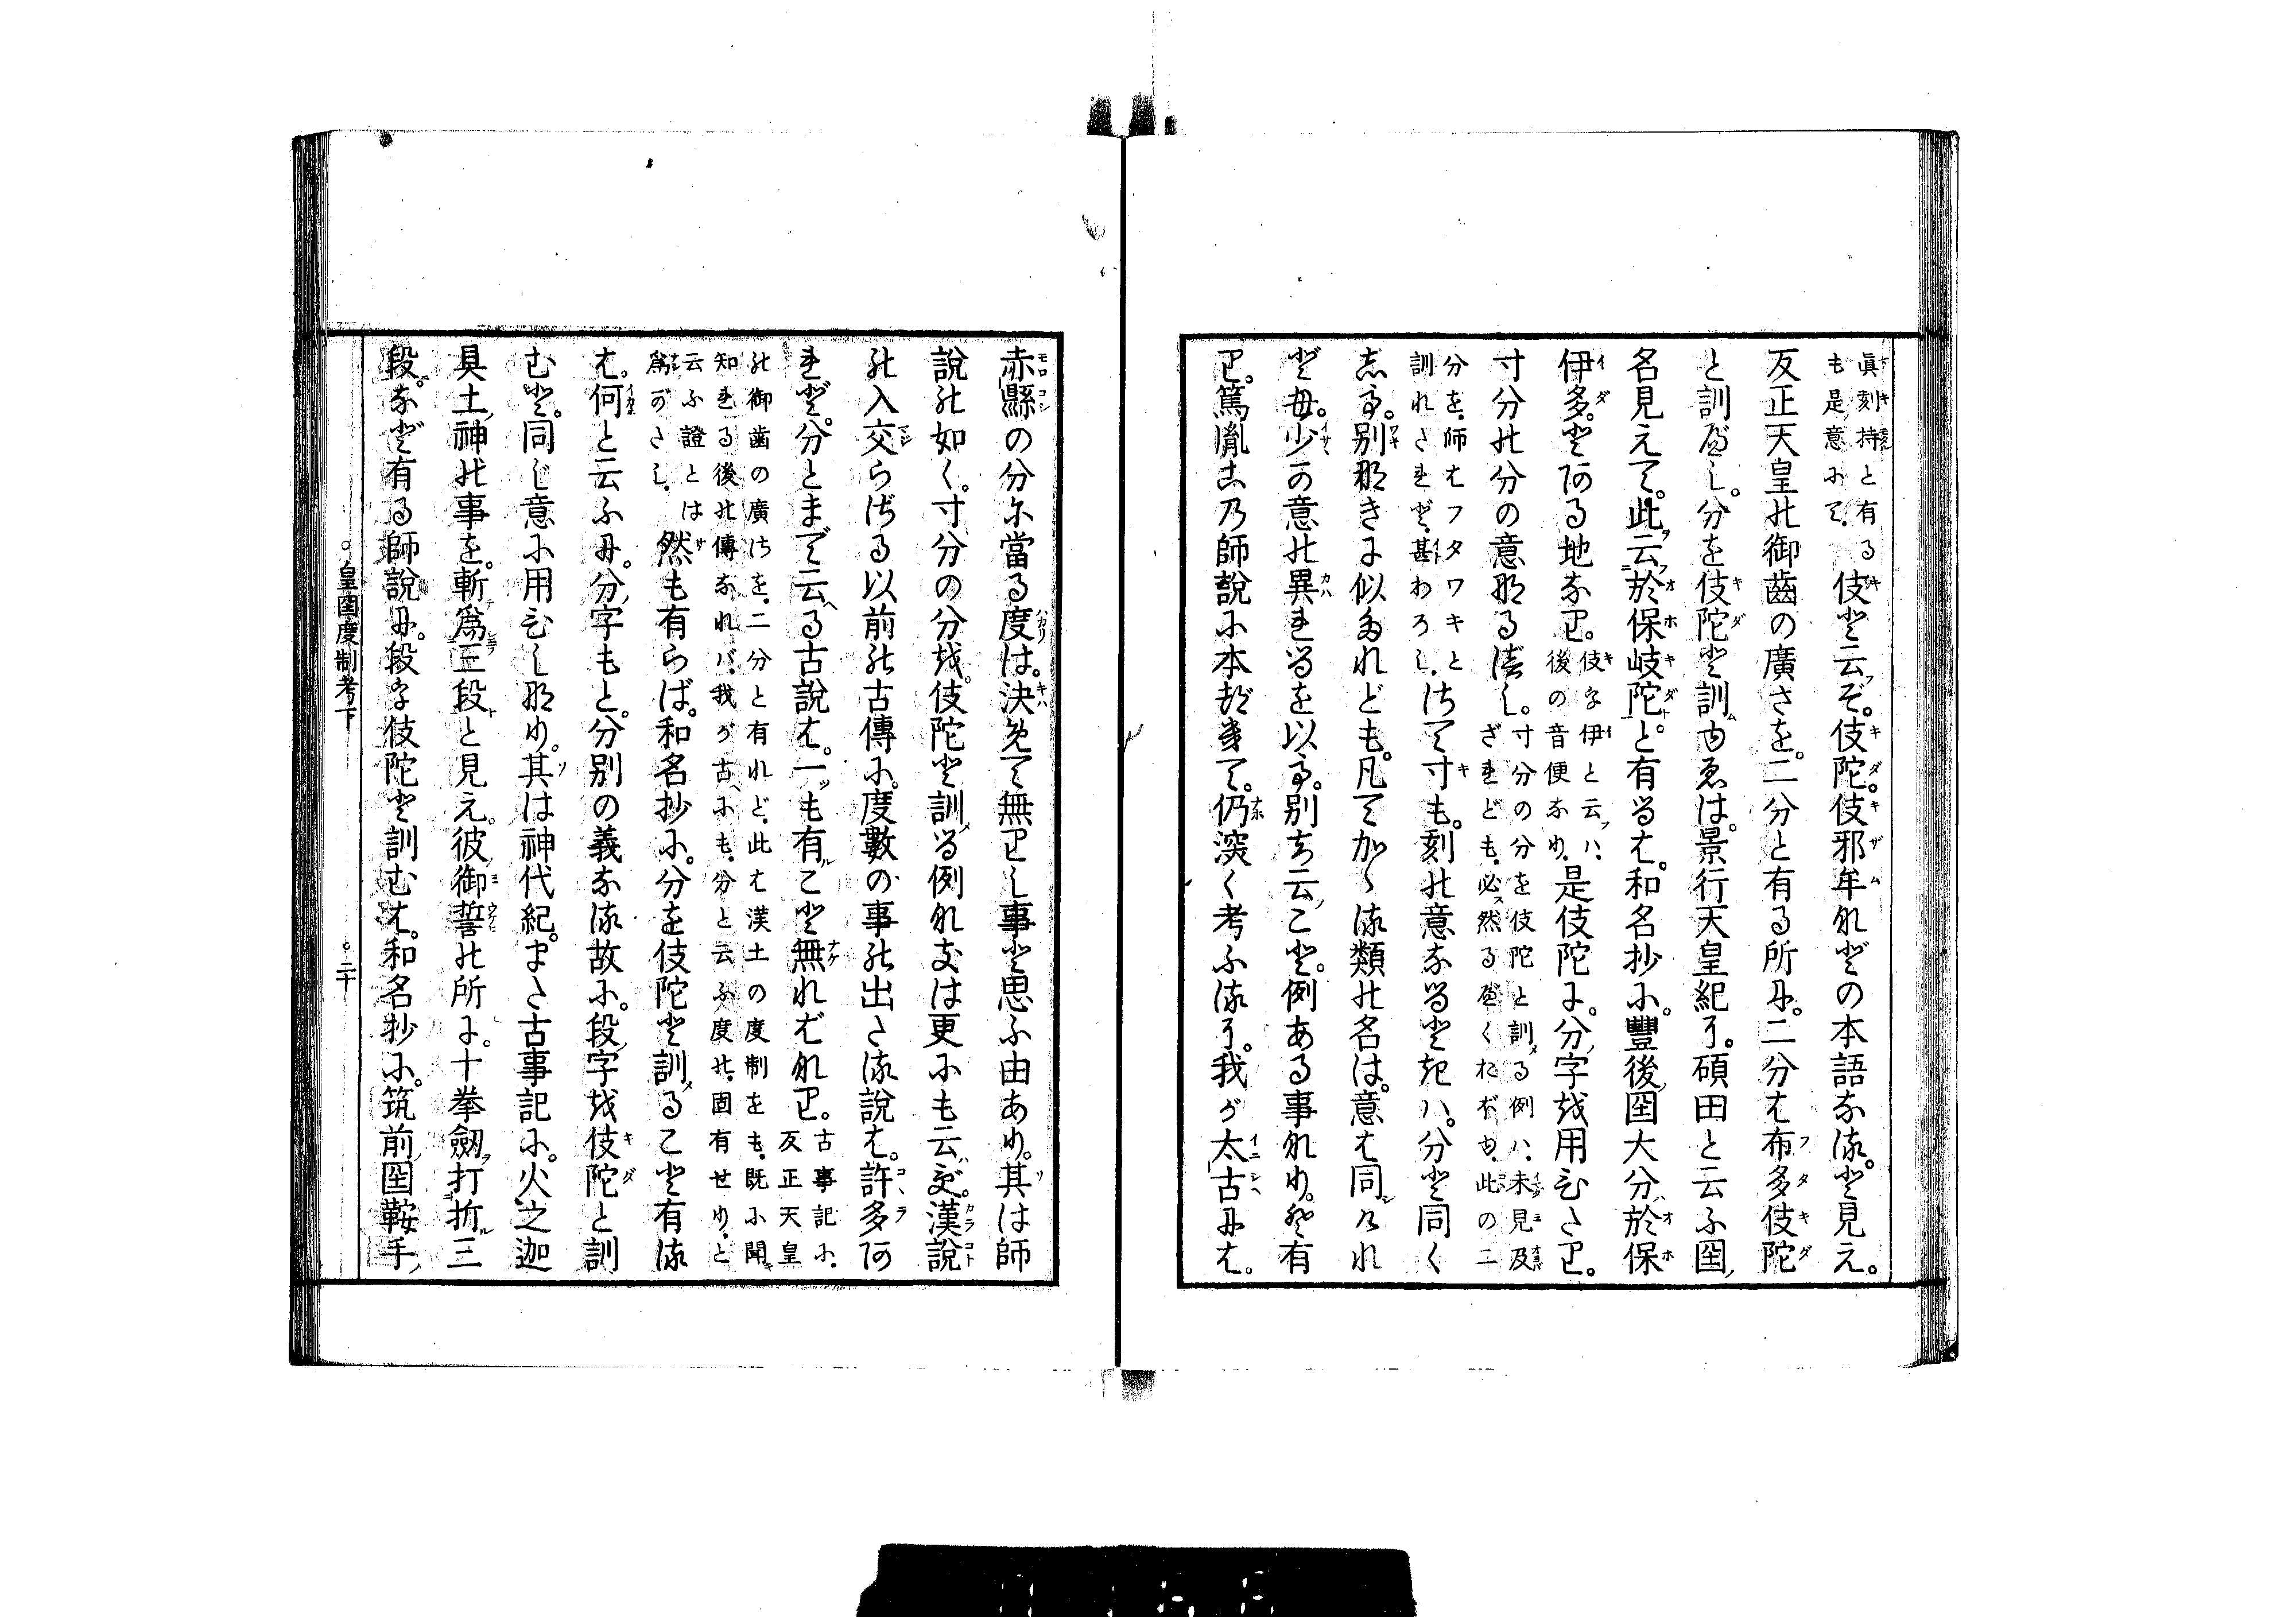 眞刻持と有る
も是意にて、
伎と云ぞ。伎陀。伎邪年などの本語なる。と見え。
反正天皇の御齒の廣さを。二分と有る所に。二分は布多伎陀
と訓べし。分を伎陀と訓むゆゑは。景行天皇紀に。碩田と云ふ国ノ
名見えて。此云於保岐陀と。有るは。和名抄に。豐後ノ国大分ハ於保
伊多。とある地なり。
伎を伊と云フハ、
後の音便なり、
是伎陀に。分ノ字を用ひたり。
寸分の分の意なるべし。
寸分の分を伎陀と訓る例ハ、未見及
ざれども、必ス然るべくおぼゆ、此の二
分を、師はフタワキと
訓れされど、甚わろし、
さて寸も。刻の意なるときハ。分と同く
して。別なきに似たれども。凡てかゝる類の名は。意は同じけれ
ども。少かの意の異れるを以て。別ち云フこと。例ある事なり。と有
り。篤胤この師説に本づきて。仍深く考ふるに。我が太古には。
赤縣の分に當る度は。決めて無りし事と思ふ由あり。其は師
説の如く。寸分の分を。伎陀と訓る例なきは更にも云ハず。漢説
の入交らざる以前の古傳に。度數の事の出たる説は。許多あ
れど。分とまで云へる古説は。一ツも有ルこと無ければなり。
古事記に、
反正天皇
の御齒の廣さを、二分と有れど、此は漢土の度制をも、既に聞キ
知れる後の傳なれバ、我が古ヘにも、分と云ふ度の、固有せりと
云ふ證とは
爲がたし、
然も有らば。和名抄に。分を伎陀と訓ること有る
は。何と云ふに。分ノ字もと。分別の義なる故に。段ノ字を伎陀と訓
むと。同じ意に用ひしなり。其は神代紀。また古事記に。火之迦
具土ノ神の事を。斬爲三段と見え。彼ノ御誓の所に。十拳劔ヲ打折三
段。など有る師説に。段を伎陀と訓むは。和名抄に。筑前ノ国鞍手ノ
皇国度制考下
二十